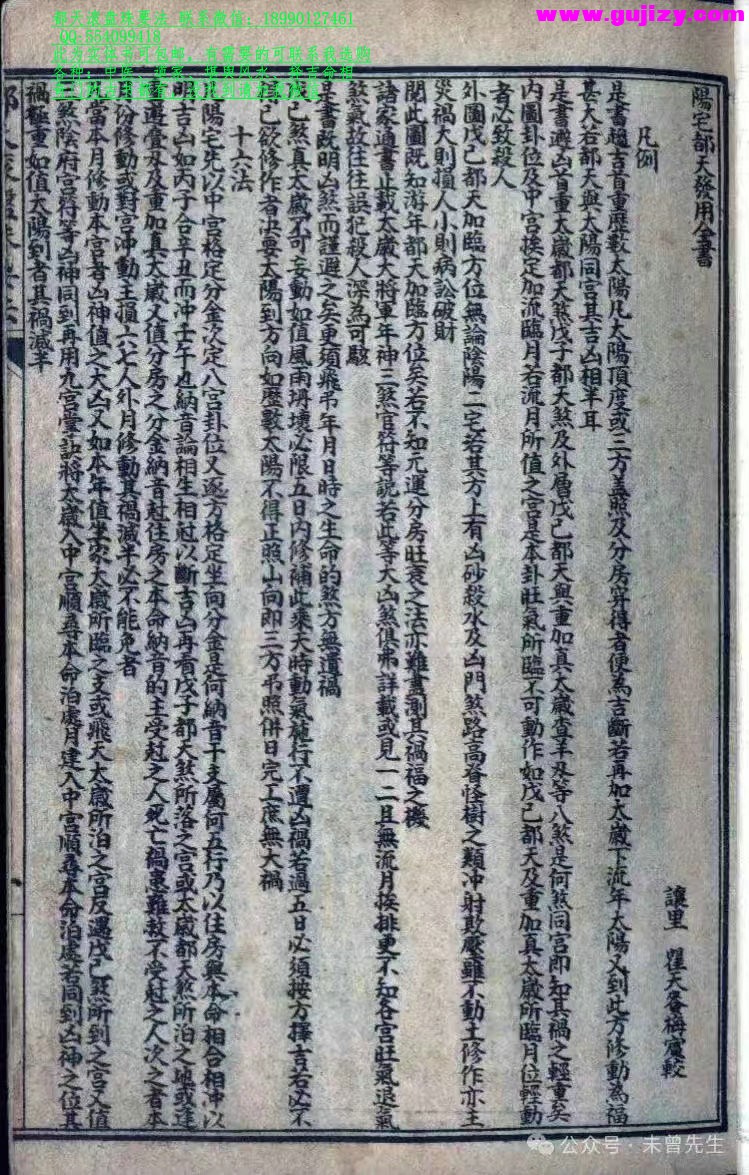 都天滚盘珠要法 联系微信：18990127461
QQ:554099418
www.gujizy.com
陽宅都天發用全書
讓里 瞿天賚梅窗較
凡例
是書趨吉首重歷數太陽凡太陽頂度或三方美照及分房算得者便為吉斷若再加太歲下流年太陽又到此方修動為福
甚大若都天與太陽同宮其吉凶相半耳
是書避凶首重太歲都天煞戊子都天煞及外層戊己都天與重加真太歲查羊刃等八煞是何煞同宮即知其禍之輕重矣
內圖卦位及中宮挨定加流臨月若流月所值之宮是本卦旺氣所臨不可動作如戊己都天及重加真太歲所臨月位輕動
者必致殺人
外圖戊己都天加臨方位無論陰陽二宅若其方上有凶砂殺水及凶門煞路高脊怪樹之類沖射欺壓雖不動土修作亦主
災禍大則損人小則病訟破財
閱此圖既知游年都天加臨方位矣若不知元運分房旺衰之法亦難盡測其禍福之機
諸家通書止載太歲大將軍年神三煞官符等説若此等大凶煞俱弗詳載或見一二且無流月挨排更不知各宮旺氣退氣
煞氣故往往誤犯殺人深為可駭
是書既明凶煞而謹避之矣更須飛弔年月日時之生命的煞方無遺禍
戊己煞真太歲不可妄動如值風雨坍壞必限五日內修補此乘天時動氣施行不遭凶禍若過五日必須按方擇吉若必不
得已欲修作者決要太陽到方向如歷數太陽不得正照山向即三方弔照併日完工庶無大禍
十六法
陽宅先以中宮格定分金次定八宮卦位又逐方格定坐向分金是何納音干支屬何五行乃以住房與本命相合相冲以
明吉凶如丙子合辛丑而冲壬午再納音論相生相尅以斷吉凶再看戊子都天煞所落之宮或太歲都天煞所泊之地或逢
遊疊刃及重加真太歲又值分房之分金納音尅住房之本命納音的主受尅之人死亡禍患難救不受尅之人次之者本
月份修動或對宮沖動主損六七人外月修動其禍減半必不能免者
凡當本月修動本宮者凶神值之大凶又如本年值坐家太歲所臨之支或飛天太歲所泊之宮反遇戊己煞所到之宮又值
的煞陰府宮符等凶神同到再用九宮掌訣將太歲入中宮順尋本命泊處月建入中宮順尋本命泊處若同到凶神之位其
禍極重如值太陽到者其禍減半
公众号·未曾先生